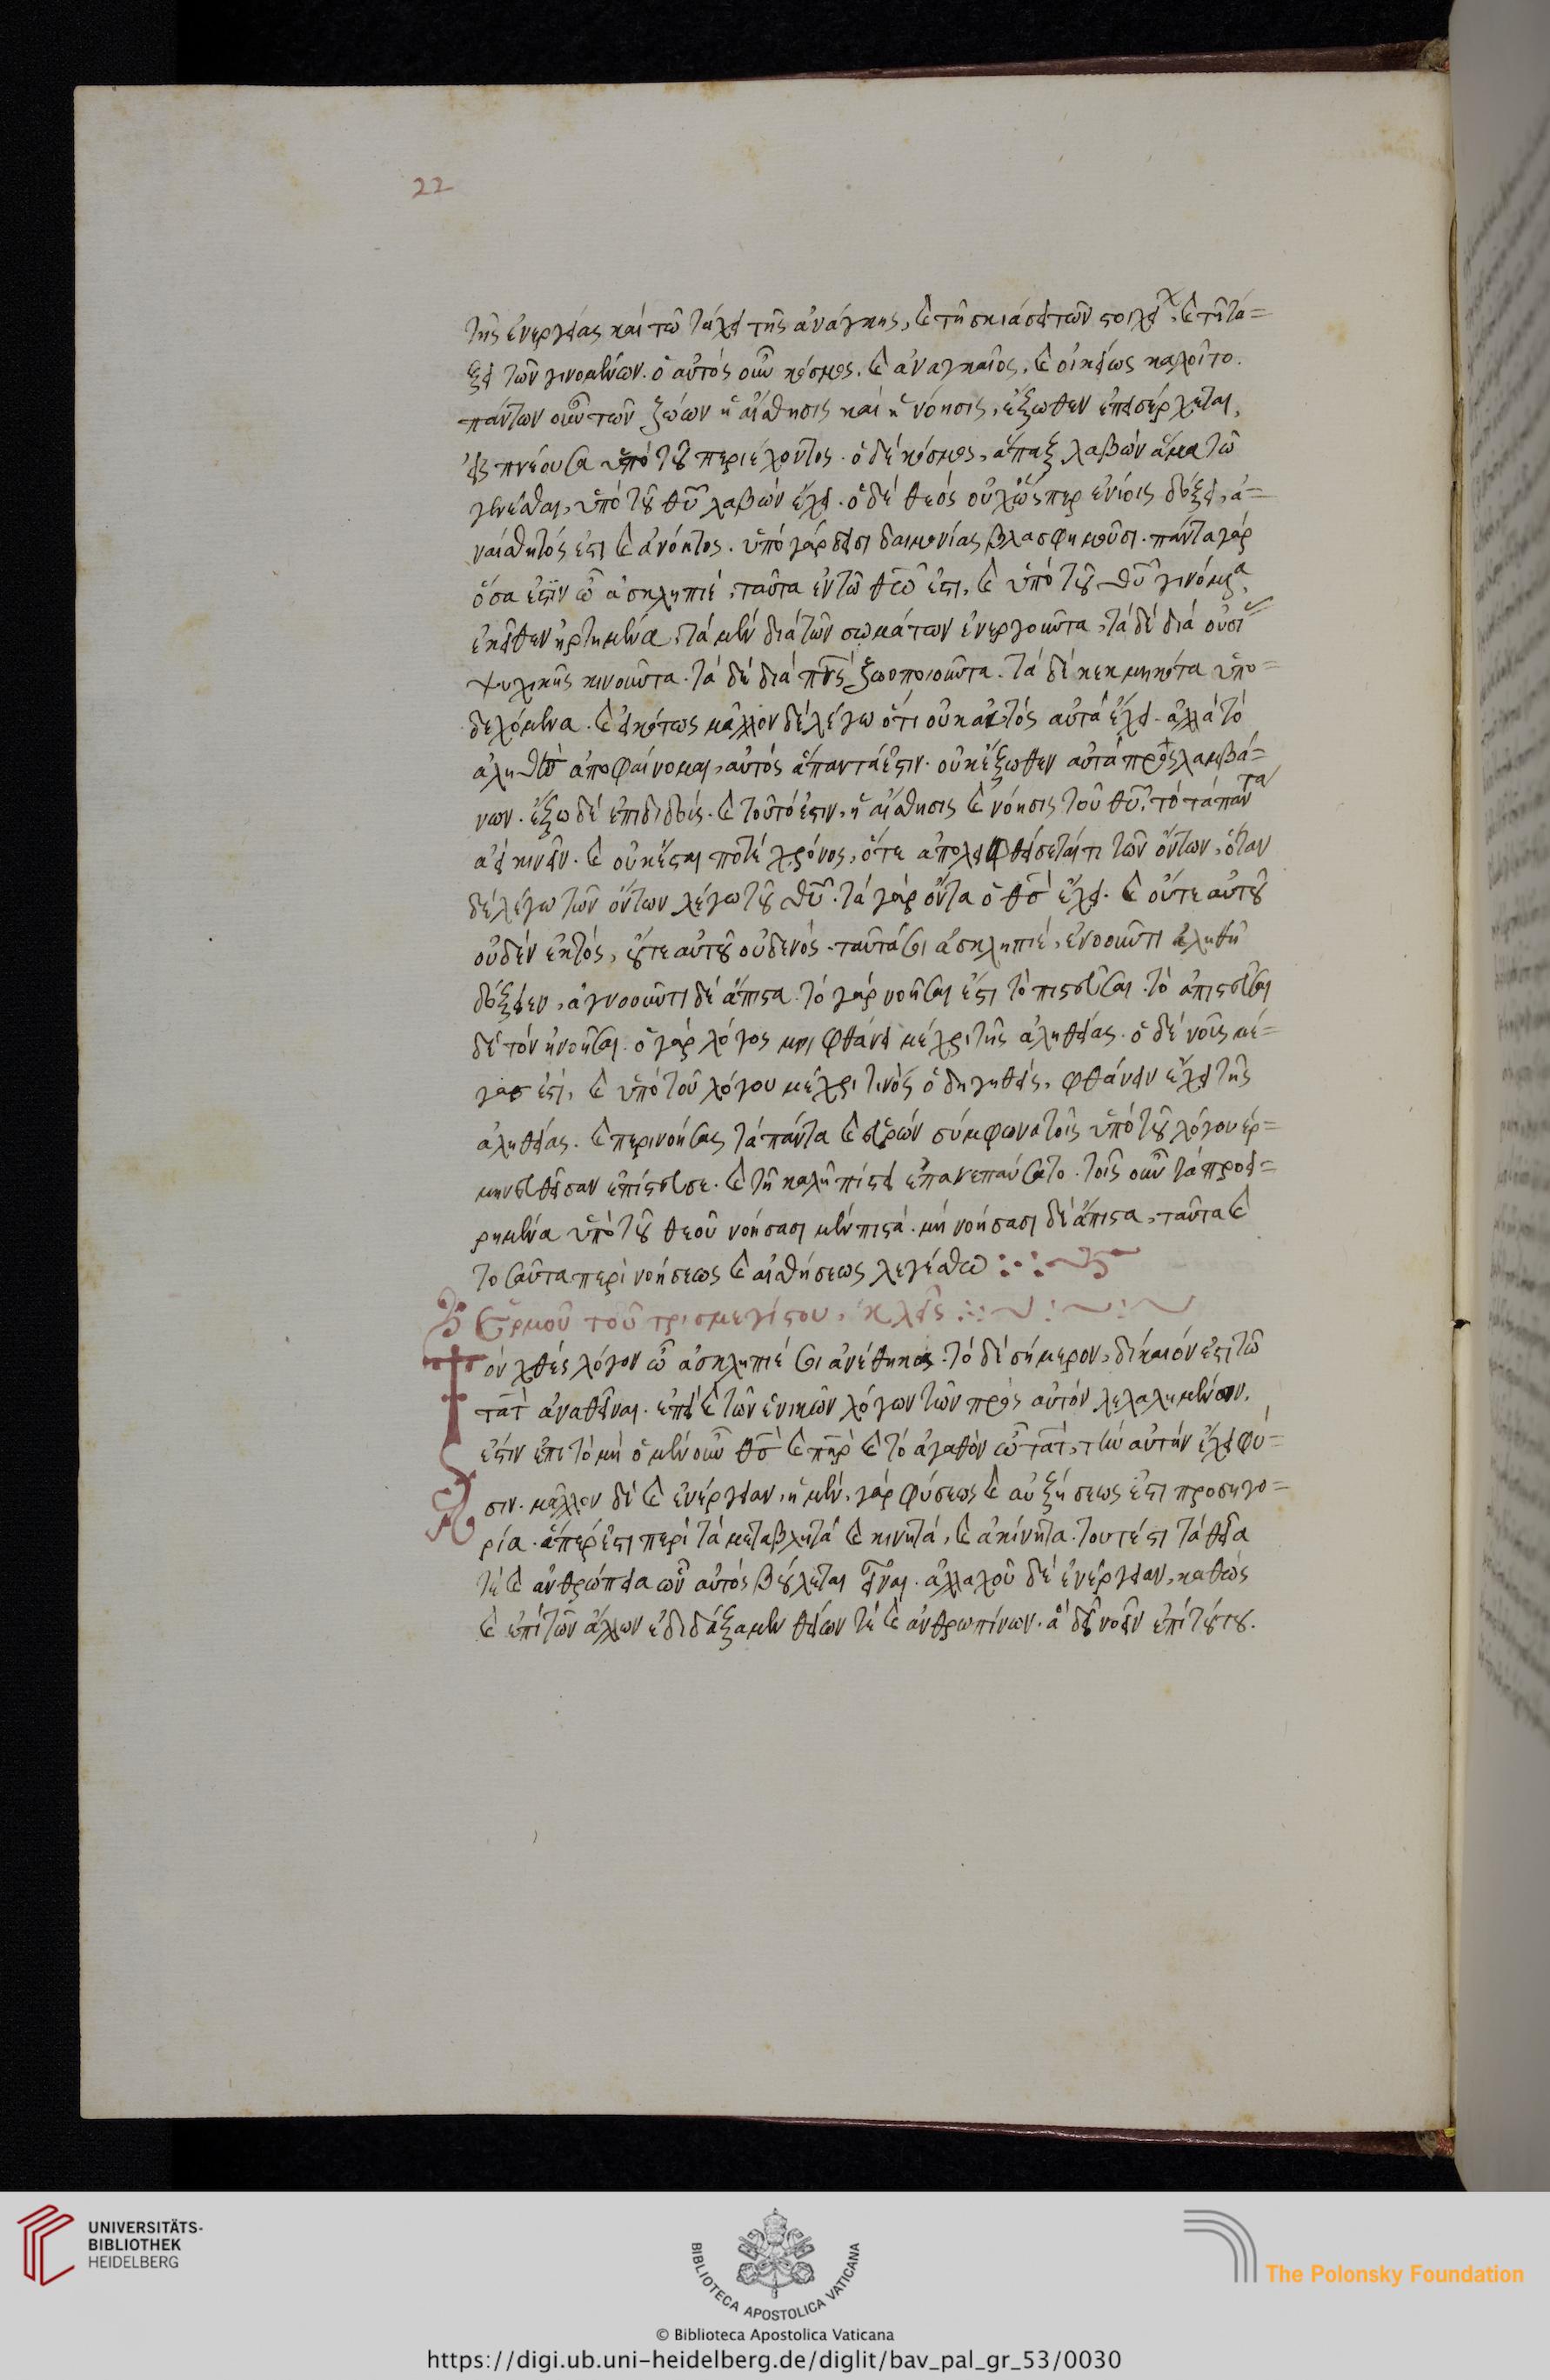 22
τῆς ἐνεργείας καὶ τῶ τάχει τῆς ἀνάγκης, καὶ τῆ σκιάσει τῶν στοιχείων, καὶ τῆ τά=
ξει τῶν γινομένων. ὁ αὐτὸς οὖν κόσμος, καὶ ἀναγκαῖος, καὶ οἰκείως καλοῖτο.
πάντων οὖν τῶν ζώων ἡ αἴσθησις καὶ ἡ νόησις, ἔξωθεν ἐπεισέρχεται,
εἰσπνέουσα ὑπὸ τοῦ περιέχοντος. ὁ δὲ κόσμος, ἅπαξ λαβὼν ἅμα τῶ
γενέσθαι, ὑπὸ τοῦ θυ λαβὼν ἔχει. ὁ δὲ θεὸς οὐχ ὥσπερ ἐνίοις δόξει, ἀ=
ναίσθητός ἐστι καὶ ἀνόητος. ὑπὸ γὰρ δεισιδαιμονίας βλασφημοῦσι. πάντα γὰρ
ὅσα ἐστὶν ὦ ἀσκληπιέ, ταῦτα ἐν τῶ θεῶ ἐστι, καὶ ὑπὸ τοῦ θυ γινόμενα,
ἐκεῖθεν ἠρτημένα, τὰ μὲν διὰ τῶν σωμάτων ἐνεργοῦντα, τὰ δὲ διὰ οὐσίας
ψυχικῆς κινοῦντα. τὰ δὲ διὰ πνς ζωοποιοῦντα. τὰ δὲ κεκμηκότα ὑπο=
δεχόμενα. καὶ εἰκότως μᾶλλον δὲ λέγω ὅτι οὐκ αὐτὸς αὐτὰ ἔχει. ἀλλὰ τὸ
ἀληθὲς ἀποφαίνομαι, αὐτὸς ἅπαντά ἐστιν. οὐκ ἔξωθεν αὐτὰ προσλαμβά=
νων. ἔξω δὲ ἐπιδιδούς. καὶ τοῦτό ἐστιν, ἡ αἴσθησις καὶ νόησις τοῦ θυ, τὸ τὰ πάντα
ἀεὶ κινεῖν. καὶ οὐκ ἔσται ποτὲ χρόνος, ὅτε ἀπολειφθήσεταί τι τῶν ὄντων, ὅταν
δὲ λέγω τῶν ὄντων λέγω τοῦ θυ. τὰ γὰρ ὄντα ὁ θσ ἔχει. καὶ οὔτε αὐτοῦ
οὐδὲν ἐκτός, οὔτε αὐτοῦ οὐδενός. ταῦτά σοι ἀσκληπιέ, ἐννοοῦντι ἀληθῆ
δόξειεν, ἀγνοοῦντι δὲ ἄπιστα. τὸ γὰρ νοῆσαι ἔστι τὸ πιστεῦσαι. τὸ ἀπιστεῦσαι
δὲ τὸν ἠνοῆσαι. ὁ γὰρ λόγος μοι φθάνει μέχρι τῆς ἀληθείας. ὁ δὲ νοῦς μέ=
γας ἐστί, καὶ ὑπὸ τοῦ λόγου μέχρι τινὸς ὁδηγηθείς, φθάνειν ἔχει τῆς
ἀληθείας. καὶ περινοήσας τὰ πάντα καὶ εὑρὼν σύμφωνα τοῖς ὑπὸ τοῦ λόγου ἑρ=
μηνευθεῖσαν ἐπίστευσε. καὶ τῆ καλῆ πίστει ἐπανεπαύσατο. τοῖς οὖν τὰ προει=
ρημένα ὑπὸ τοῦ θεοῦ νοήσασι μὲν πιστά. μὴ νοήσασι δὲ ἄπιστα, ταῦτα καὶ
τοσαῦτα περὶ νοήσεως καὶ αἰσθήσεως λεγέσθω
Ἑρμοῦ τοῦ τρισμεγίστου, κλείς
Τὸν χθὲς λόγον ὦ ἀσκληπιέ σοι ἀνέθηκα. τὸ δὲ σήμερον, δίκαιόν ἐστι τῶ
τὰτ ἀναθεῖναι. ἐπεὶ καὶ τῶν γενικῶν λόγων τῶν πρὸς αὐτὸν λελαλημένων,
ἐστὶν ἐπιτομή ὁ μὲν οὖν θσ καὶ πηρ καὶ τὸ ἀγαθὸν ὦ τὰτ, τὴν αὐτὴν ἔχει φύ=
σιν. μᾶλλον δὲ καὶ ἐνέργειαν, ἡ μὲν, γὰρ φύσεως καὶ αὐξήσεως ἐστι προσηγο=
ρία. ἅπερ ἐστι περὶ τὰ μεταβλητὰ καὶ κινητά, καὶ ἀκίνητα. τουτέστι τὰ θεῖα
τὲ καὶ ἀνθρώπεια ὧν αὐτὸς βούλεται εἶναι. ἀλλαχοῦ δὲ ἐνέργειαν, καθὼς
καὶ ἐπὶ τῶν ἄλλων ἐδιδάξαμεν θείων τὲ καὶ ἀνθρωπίνων. ἃ δεῖ νοεῖν ἐπὶ τούτου.
UNIVERSITÄTS-
BIBLIOTHEK
HEIDELBERG
BIBLIOTECA APOSTOLICA VATICANA
The Polonsky Foundation
© Biblioteca Apostolica Vaticana
https://digi.ub.uni-heidelberg.de/diglit/bav_pal_gr_53/0030